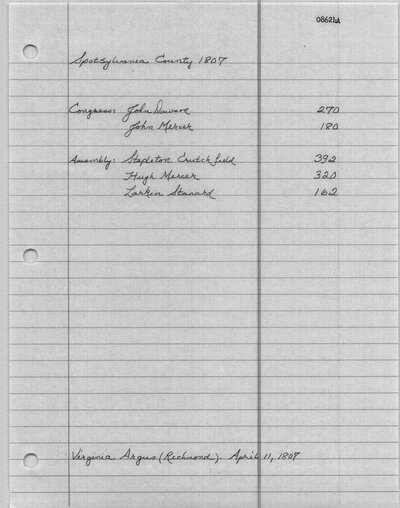 08621A
Spotsylvania County 1807
Congress: John Dawson 270
John Mercer 180
Assembly: Stapleton Crutchfield 392
Hugh Mercer 320
Larkin Stanard 162
Virginia Argus (Richmond). April 11, 1807